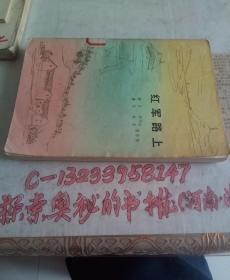 红军路上
C-13233958147
探索奥秘的书摊(河南